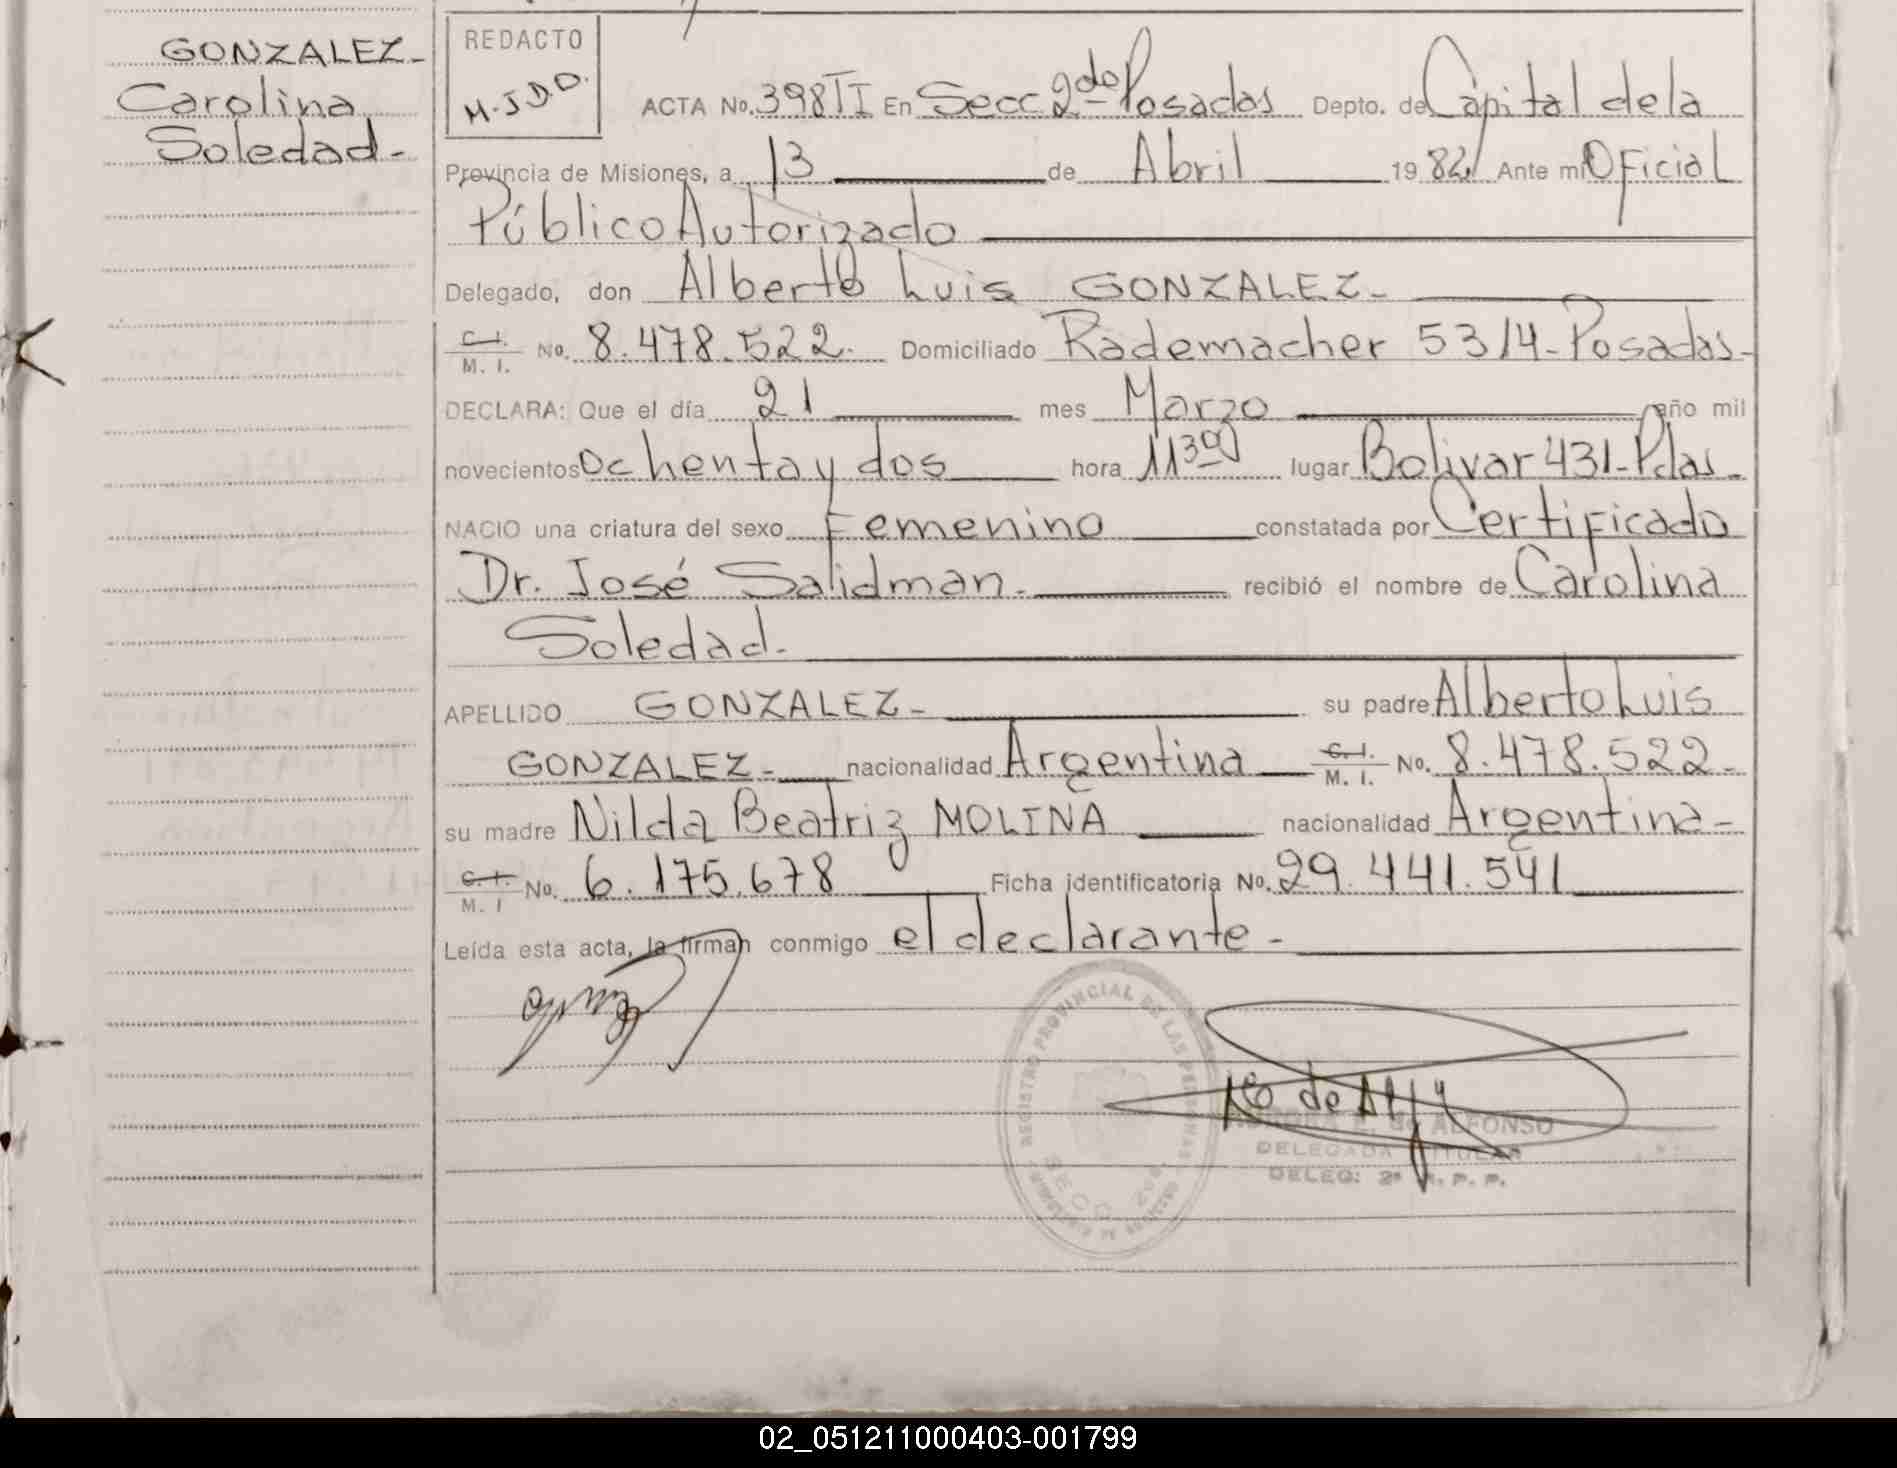 GONZALEZ-
Carolina
Soledad.-
REDACTO
M.J.D.D.
ACTA No. 398 TI En Secc 2da Posadas Depto. de Capital de la
Provincia de Misiones, a 13 de Abril 1982 Ante mi Oficial
Público Autorizado
Delegado, don Alberto Luis GONZALEZ-
C.I. M. I. No. 8.478.522. Domiciliado Rademacher 5314-Posadas-
DECLARA: Que el día 21 mes Marzo año mil
novecientos Ochenta y dos hora 1130 lugar Bolivar 431-Pdas-
NACIO una criatura del sexo Femenino constatada por Certificado
Dr. José Salidman. recibió el nombre de Carolina
Soledad.-
APELLIDO GONZALEZ- su padre Alberto Luis
GONZALEZ- nacionalidad Argentina C.I. M. I. No. 8.478.522-
su madre Nilda Beatriz MOLINA nacionalidad Argentina-
C.I. M. I No. 6.175.678 Ficha identificatoria No. 29.441.541
Leída esta acta, la firman conmigo el declarante-
REGISTRO PROVINCIAL DE LAS PERSONAS
SECC. 2da.
E. de ALFONSO
DELEGADA TITULAR
DELEG: 2ª R. P. P.
02_051211000403-001799